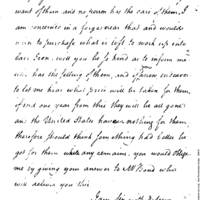 want of them and no person has the care of them. I
am concerned in a forge near that and would
want to purchase what is left to work up into
bar Iron, will you be so kind as to inform me
who has the selling of them, and if you can endeavor
to let me hear what price will be taken for them,
if not one year from this they will be all gone
as the United States have nothing for them,
therefore should think something had better be
got for them while any remains, you would oblige
me by giving your answer to Mr Bond who
will deliver you this
I am Sir